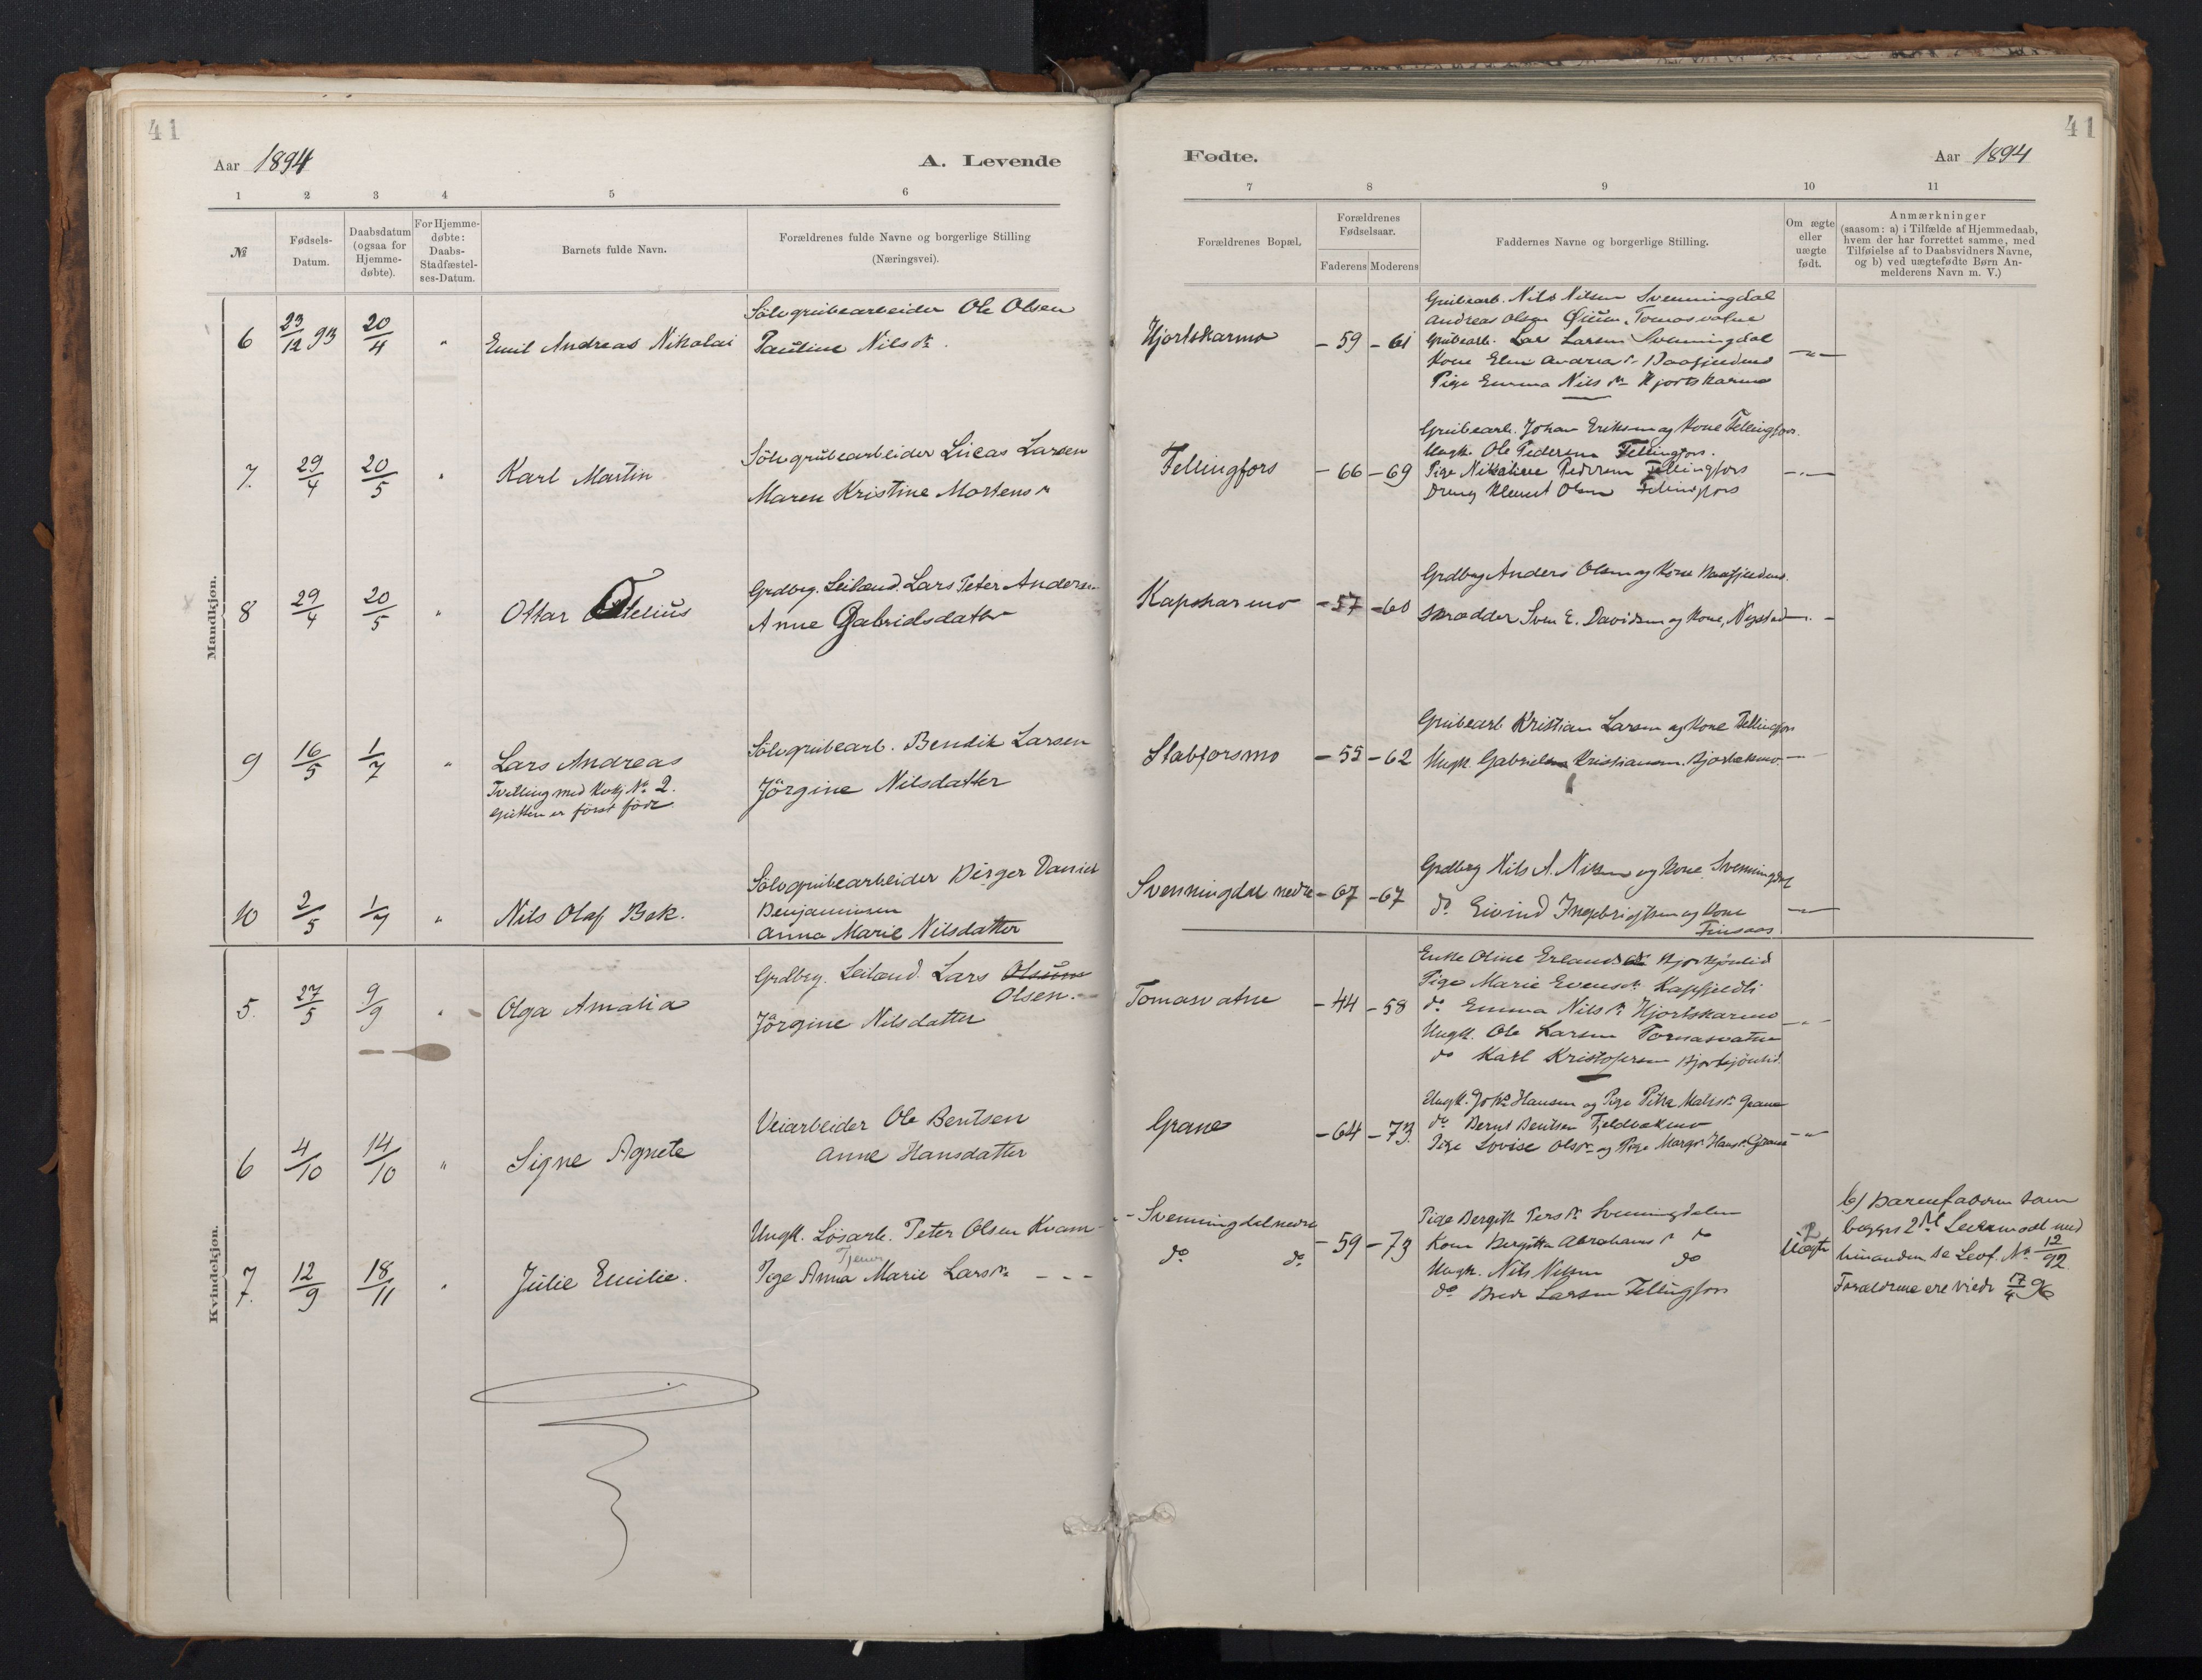 41
Aar 1894
A. Levende
1 2 3 4 5 6
№
Fødsels-
Datum.
Daabsdatum
(ogsaa for
Hjemme-
døbte).
For Hjemme-
døbte:
Daabs-
Stadfæstel-
ses-Datum.
Barnets fulde Navn.
Forældrenes fulde Navne og borgerlige Stilling
(Næringsvei).
Mandkjøn.
6 23/12 93 20/4 " Emil Andreas Nikolai
Sölvgrubearbeider Ole Olsen
Pauline Nilsdr.
7. 29/4 20/5 " Karl Martin
Sölvgrubearbeider Lucas Larsen
Maren Kristine Mortensdr
8 29/4 20/5 " Ottar Otelius
Grdbrg. Leilænd. Lars Peter Andersen
Anne Gabrielsdatter
9 16/5 1/7 " Lars Andreas
Tvilling med Kvkj № 2.
Gutten er først född.
Sölvgrubearb. Bendik Larsen
Jörgine Nilsdatter
10 2/5 1/7 " Nils Olaf Bek.
Sölvgrubearbeider Birger Daniel
Benjaminsen
Anna Marie Nilsdatter
Kvindekjøn.
5. 27/5 9/9 " Olga Amalia
Grdbrg. Leilænd. Lars
Olsen.
Jörgine Nilsdatter
6 4/10 14/10 " Signe Agnete
Veiarbeider Ole Bentsen
Anne Hansdatter
7. 12/9 18/11 " Julie Emilie.
Ungk. Lösarb. Peter Olsen Kvam
Tjener
Pige Anna Marie Larsdr. - - -
41
Fødte.
Aar 1894
7 8 9 10 11
Forældrenes Bopæl,
Forældrenes
Fødselsaar.
Faderens Moderens
Faddernes Navne og borgerlige Stilling.
Om ægte
eller
uægte
født.
Anmærkninger
(saasom: a) i Tilfælde af Hjemmedaab,
hvem der har forrettet samme, med
Tilføielse af to Daabsvidners Navne,
og b) ved uægtefødte Børn An-
melderens Navn m. V.)
Hjortskarmo - 59 - 61
Grubearb. Nils Nilsen Svenningdal
Andreas Olsen Tomasvatne
Grubearb. Lars Larsen Svenningdal
Kone Elen Andreasdr.
Pige Emma Nilsdr. Hjortskarmo
Fellingfors - 66 - 69
Grubearb. Johan Eriksen og Kone Fellingfors.
Ungk. Ole Pedersen Fellingfors.
Pige Nikoline Pedersen Fellingfors
Dreng Klemet Olsen Fellingfors
Kapskarmo - 57 - 60
Grdbrg Anders Olsen og Kone
Skrædder Sven E. Davidsen og Kone, Nystad
Stabforsmo - 55 - 62
Grubearb. Kristian Larsen og Kone Fellingfors
Ungk. Gabriel Kristiansen.
Svenningdal nedre - 67 - 67
Grdbrg Nils A. Nilsen og Kone Svenningdal
do. Eivind Ingebrigtsen og Kone
Finsaas
Tomasvatne - 44 - 58
Enke Oline Erlandsdr.
Pige Marie Evensdr. Kapfjeldli
do. Emma Nilsdr. Hjortskarmo
Ungk. Ole Larsen Tomasvatne
do Karl Kristofersen
Grane - 64 - 73.
Ungk. Johs Hansen og Pige Grane
do. Bernt Bentsen Fjeldbækmo
Pige Lovise Olsdr. og Pige Margr. Hansdr. Grane
Svenningdal nedre
do. do. - 59 - 73
Pige Bergitte Persdr. Svenningdalen
Kone Bergitta Abrahamsdr do
Ungk. Nils Nilsen do
do Larsen Fellingfors
2
Uægte
b) Barnefaderen som
begges 2det Leiermaal med
hinanden se Levf. № 12/92.
Forældrene ere viede 17/4 96